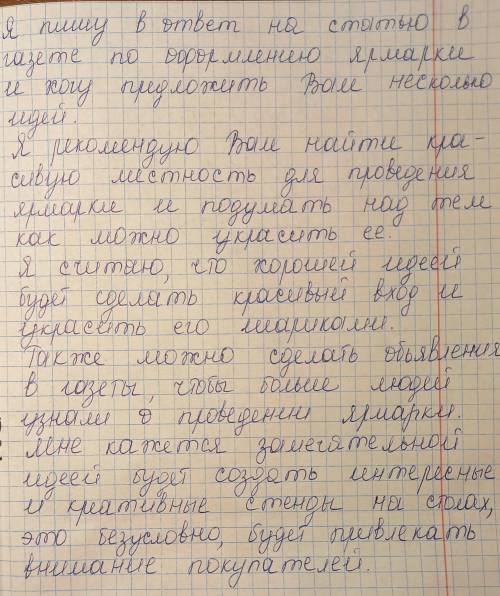 Я пишу в ответ на статью в
газете по оформлению ярмарки
и хочу предложить Вам несколько
идей.
Я рекомендую Вам найти кра-
сивую местность для проведения
ярмарки и подумать над тем
как можно украсить ее.
Я считаю, что хорошей идеей
будет сделать красивый вход и
украсить его шариками.
Также можно сделать обьявления
в газеты, чтобы больше людей
узнали о проведении ярмарки.
Мне кажется замечательной
идеей будет создать интересные
и креативные стенды на столах,
это безусловно, будет привлекать
внимание покупателей.